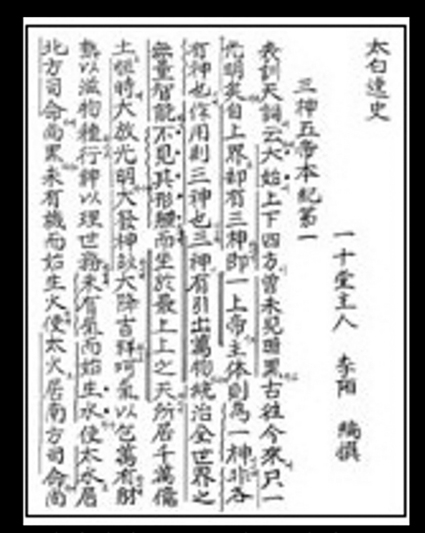 太白逸史
一十堂主人 李陌 編撰
三神五帝本紀第一
表訓天詞云大始上下四方曾未見暗黑古往今來只一
光明矣自上界却有三神卽一上帝主体則爲一神非各
有神也作用則三神也三神有引出萬物統治全世界之
無量智能不見其形軆而坐於最上上之天所居千萬億
土恒時大放光明大發神玅大降吉祥呵氣以包萬有射
熱以滋物種行神以理世務未有氣而始生水使太水居
北方司命尚黑未有機而始生火使太火居南方司命尚